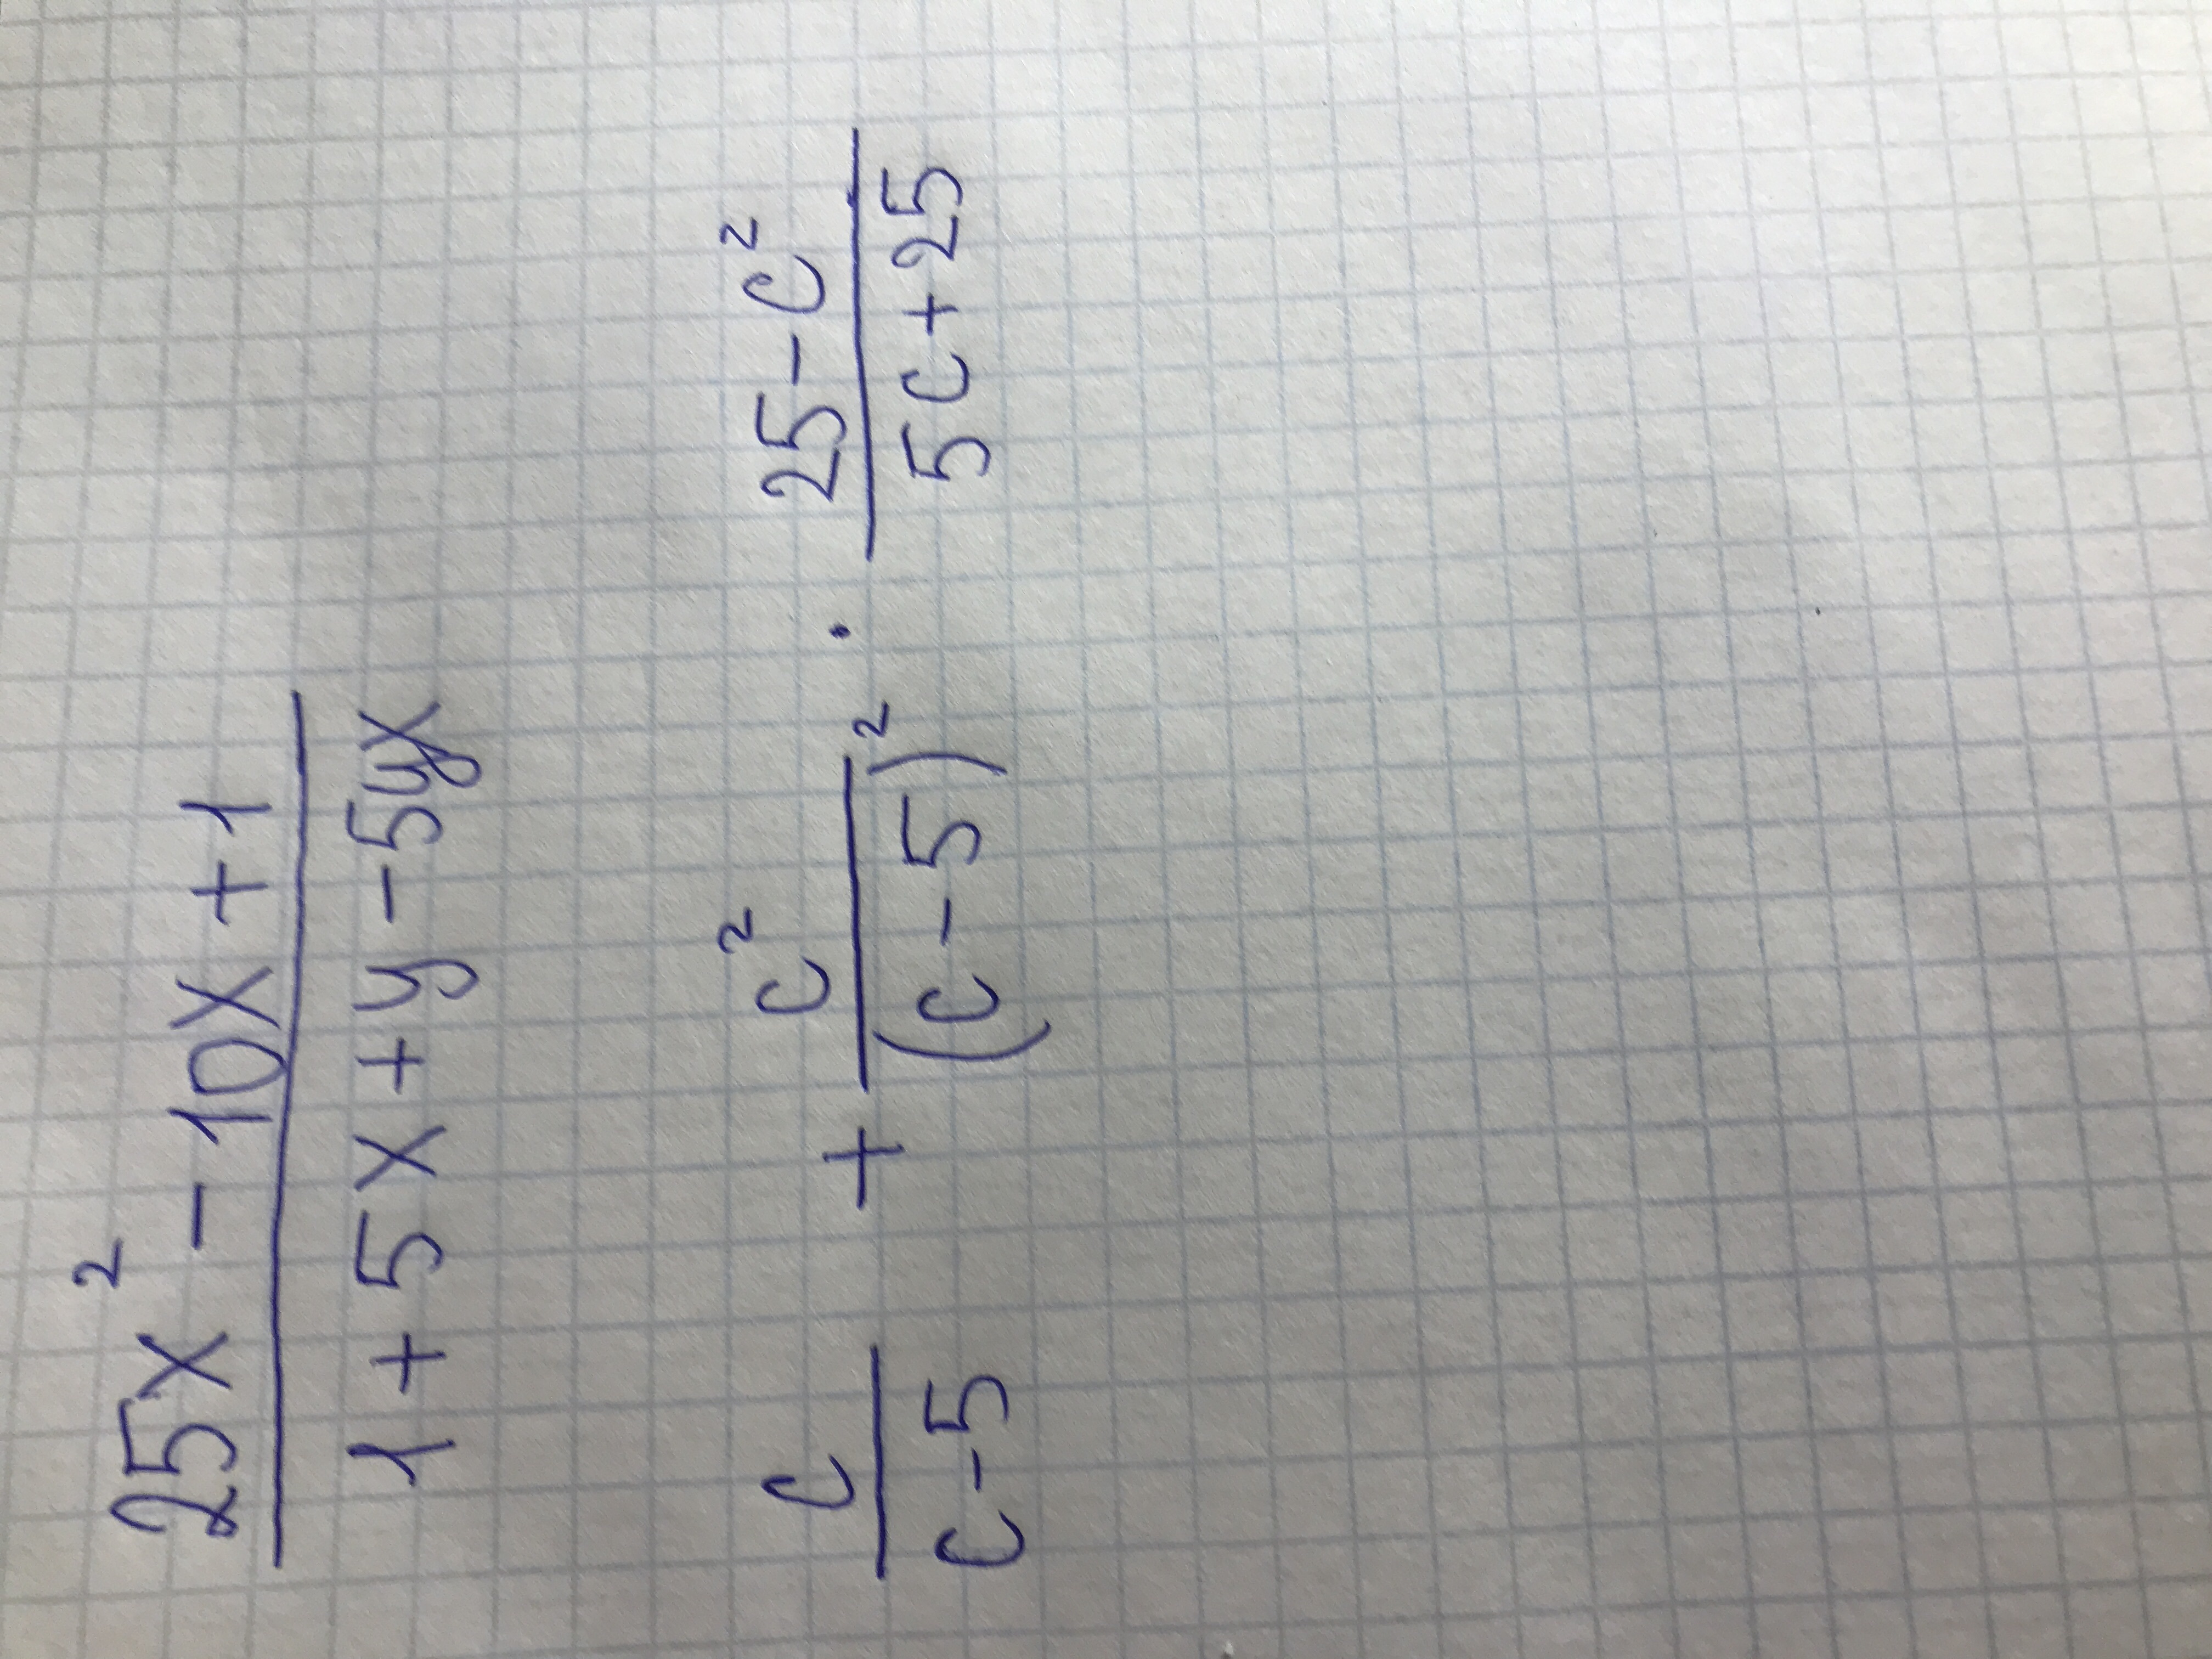 25x² - 10x + 1
1 + 5x + y - 5yx
c c² 25 - c²
+ ·
c - 5 (c - 5)² 5c + 25